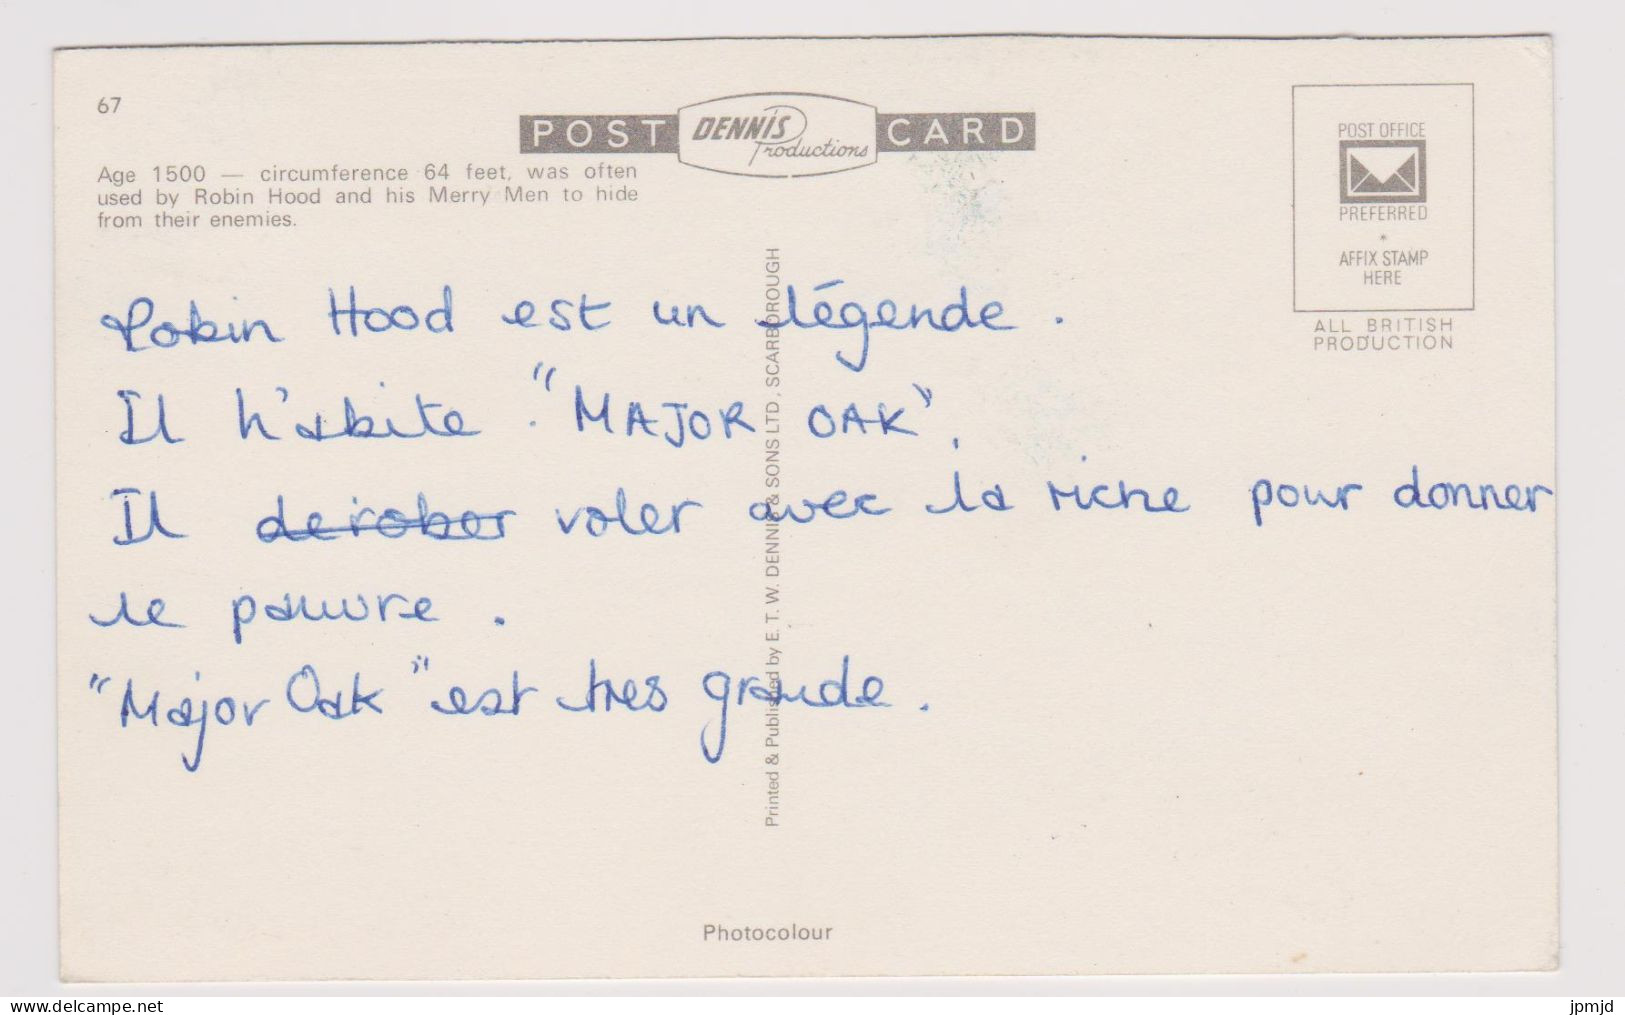 67
POST DENNIS Productions CARD
Age 1500 — circumference 64 feet, was often
used by Robin Hood and his Merry Men to hide
from their enemies.
POST OFFICE
PREFERRED
*
AFFIX STAMP
HERE
ALL BRITISH
PRODUCTION
Robin Hood est un légende.
Il h'abite "MAJOR OAK".
Il derober voler avec la riche pour donner
le pauvre.
"Major Oak" est tres grande.
Printed & Published by E. T. W. DENNIS & SONS LTD., SCARBOROUGH
Photocolour
www.delcampe.net
jpmjd